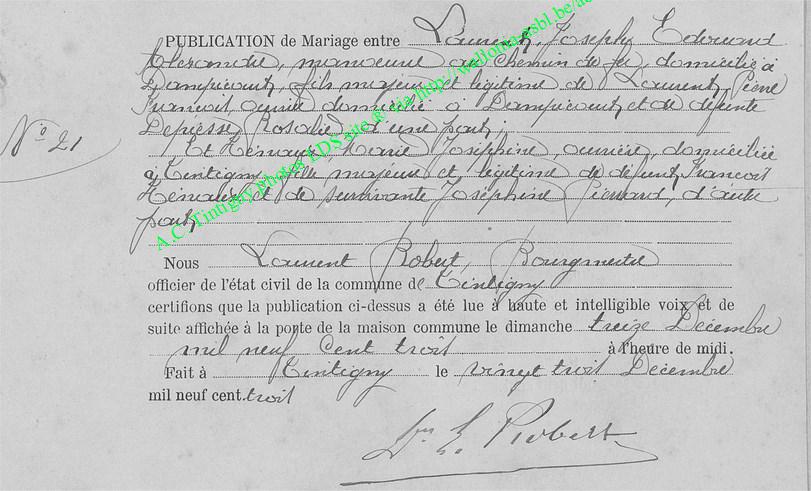 PUBLICATION de Mariage entre Laurent, Joseph Edouard
Alexandre, manoeuvre au chemin de fer, domicilié à
Dampicourt, fils majeur et légitime de Laurent, Pierre
François, ouvrier domicilié à Dampicourt et de défunte
Depiesse, Rosalie, d'une part,
Et Hémaux, Marie Joséphine, ouvrière, domiciliée
à Tintigny, fille majeure et légitime de défunt François
Hémaux et de survivante Joséphine Pierrard, d'autre
part,
Nº 21
Nous Laurent Robert, Bourgmestre
officier de l'état civil de la commune de Tintigny
certifions que la publication ci-dessus a été lue à haute et intelligible voix et de
suite affichée à la porte de la maison commune le dimanche treize Décembre
mil neuf Cent trois à l'heure de midi.
Fait à Tintigny le vingt trois Décembre
mil neuf cent trois
Robert
A.C. Tintigny photos LDS site ® via http://wallonia-asbl.be/